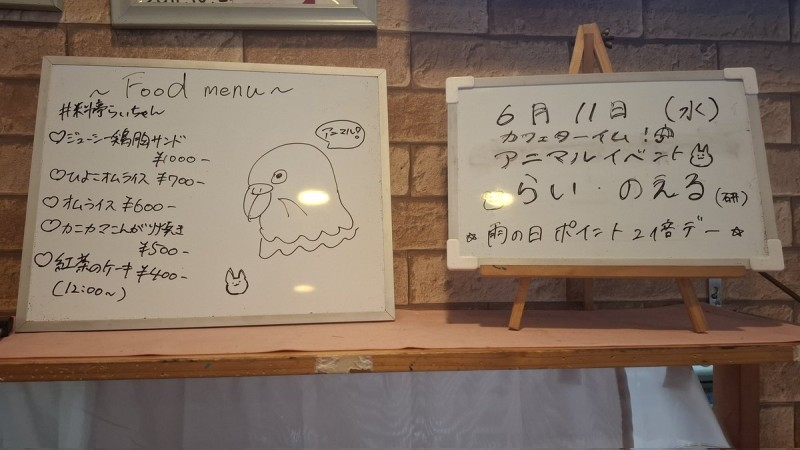 ~ Food menu ~
#料亭らいちゃん
♡ジューシー鶏胸サンド
¥1000-
♡ひよこオムライス ¥700-
♡オムライス ¥600-
♡カニカマこんがり焼き
¥500-
♡紅茶のケーキ ¥400-
(12:00~)
アニマル!
6月 11日 (水)
カフェターイム!
アニマルイベント
らい・のえる(研)
☆ 雨の日 ポイント2倍デー ☆